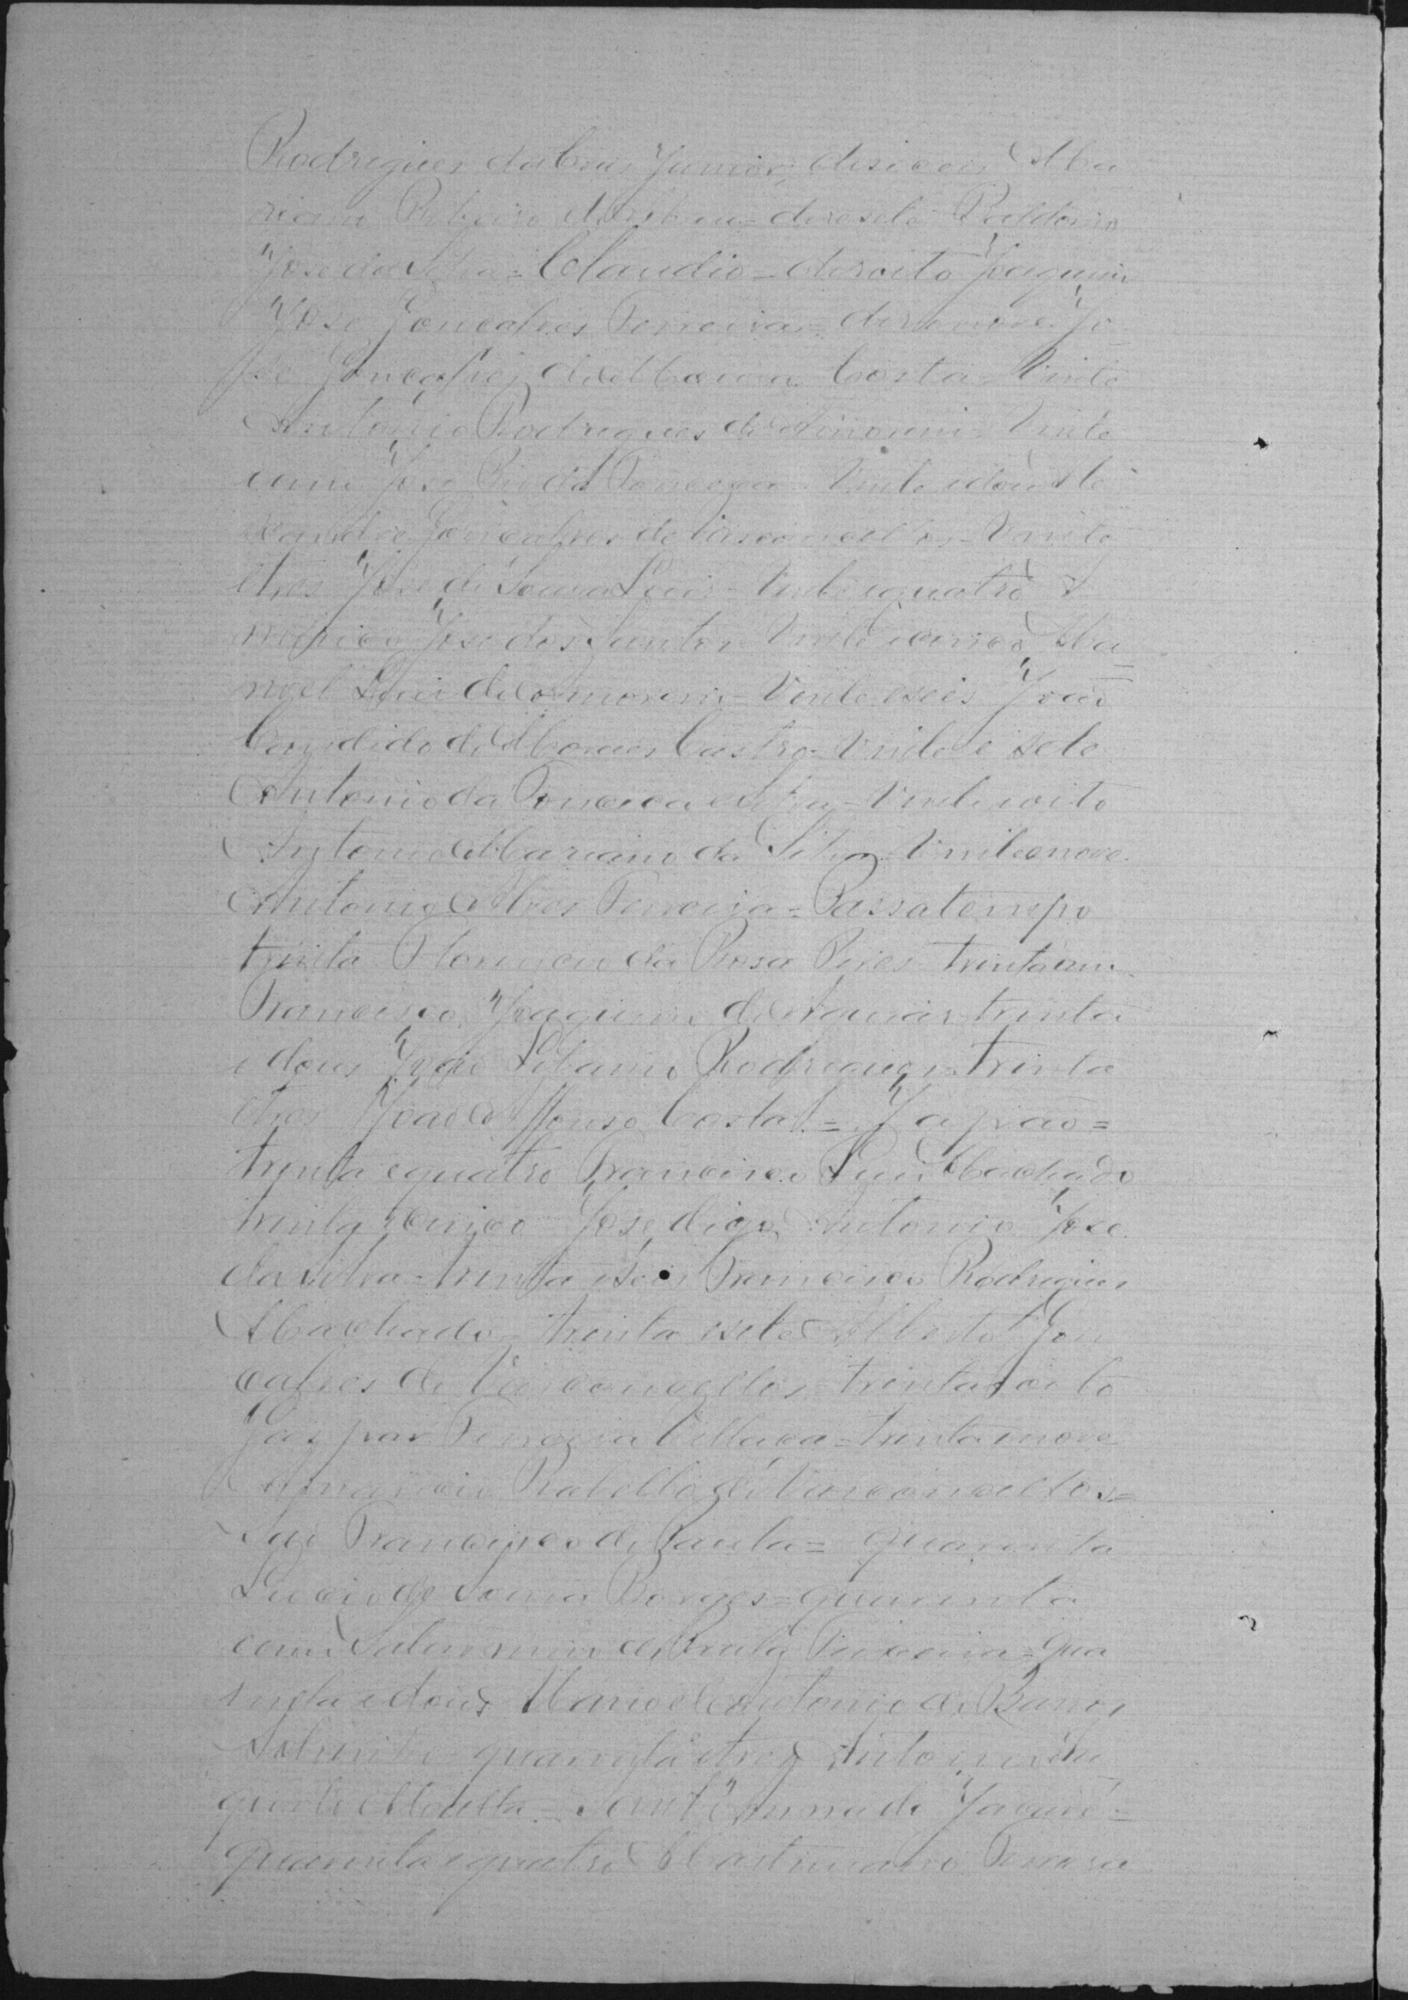 Rodrigues da Cruz Junior, deseceis Ma
riano Ribeiro de Abreu = desesete Baldoino
José da Silva = Claudio = desoito Joaquim
José Gonçalves Ferreira = desenove Jo
sé Gonçalves de Moura Costa = Vinte
Antonio Rodrigues de Amorim = Vinte
eum José Pio da Fonceca = Vinte edous Ale
xandre Gonçalves de Vasconcellos = Vinte
etres José de Souza Luis = Vinte equatro A
merico José dos Santos Vinte ecinco Ma
noel Luis de Amorim = Vinte eseis João
Candido de Moraes Castro = Vinte e sete
Antonio da Fonceca e Silva = Vinte eoito
Antonio Mariano da Silva = Vinte enove
Antonio Alves Ferreira = Passatempo
trinta Florencio da Rosa Pires trinta eum
Francisco Joaquim de Araujo = trinta
edous João Libanio Rodrigues = Trinta
etres João Affonso Costa = Japão =
trinta equatro Francisco Luis Machado
trinta ecinco José, digo, Antonio José
da Silva = trinta eseis Francisco Rodrigues
Machado, trinta esete Alberto Gon
çalves de Vasconcellos = trinta eoito
Gaspar Ferreira Villaça = trinta enove
Amancio Rabello de Vasconcellos =
São Francisco de Paula = quarenta
Lucio de Souza Borges = quarenta
eum de Paula Teixeira = qua
renta edous Manoel Antonio de Barros
quarenta etres Antonio Du
quarenta equatro Ferreira